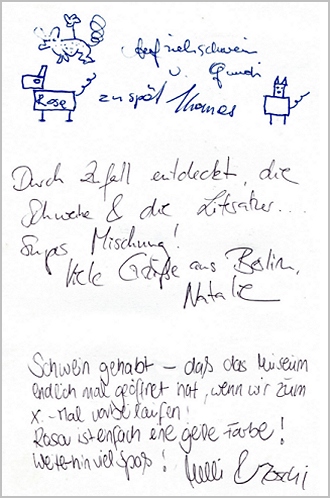 Rosa
zu spät Thomas
Durch Zufall entdeckt, die
Schweine & die Literatur....
Super Mischung!
Viele Grüße aus Berlin,
Natalie
Schwein gehabt – daß das Museum
endlich mal geöffnet hat, wenn wir zum
x.-Mal vorbeilaufen!
Rosa ist einfach eine geile Farbe!
Weiterhin viel Spaß!